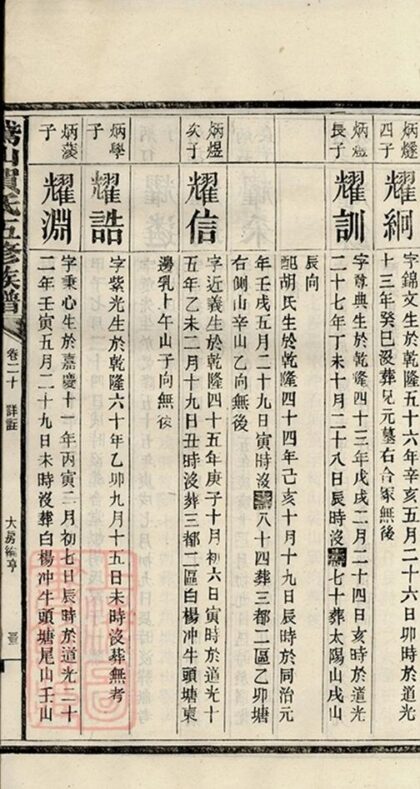 炳燧
四子
耀綱
字錦文生於乾隆五十六年辛亥五月二十六日時於道光
十三年癸巳沒葬兄元墓右合冢無後
炳燈
長子
耀訓
字尊典生於乾隆四十三年戊戌二月二十四日亥時於道光
二十七年丁未十月二十八日辰時沒壽七十葬太陽山戌山
辰向
配胡氏生於乾隆四十四年己亥十月十九日辰時於同治元
年壬戌五月二十九日寅時沒壽八十四葬三都二區乙卯塘
右側山辛山乙向無後
炳煜
次子
耀信
字近義生於乾隆四十五年庚子十月初六日寅時於道光十
五年乙未二月十九日丑時沒葬三都二區白楊冲牛頭塘東
邊乳上午山子向無後
炳學
子
耀誥
字紫光生於乾隆六十年乙卯九月十五日未時沒葬無考
炳蔆
子
耀淵
字秉心生於嘉慶十一年丙寅二月初七日辰時於道光二十
二年壬寅五月二十九日未時沒葬白楊冲牛頭塘尾山壬山
山賀氏五修族譜
卷二十
詳註
大房編亨